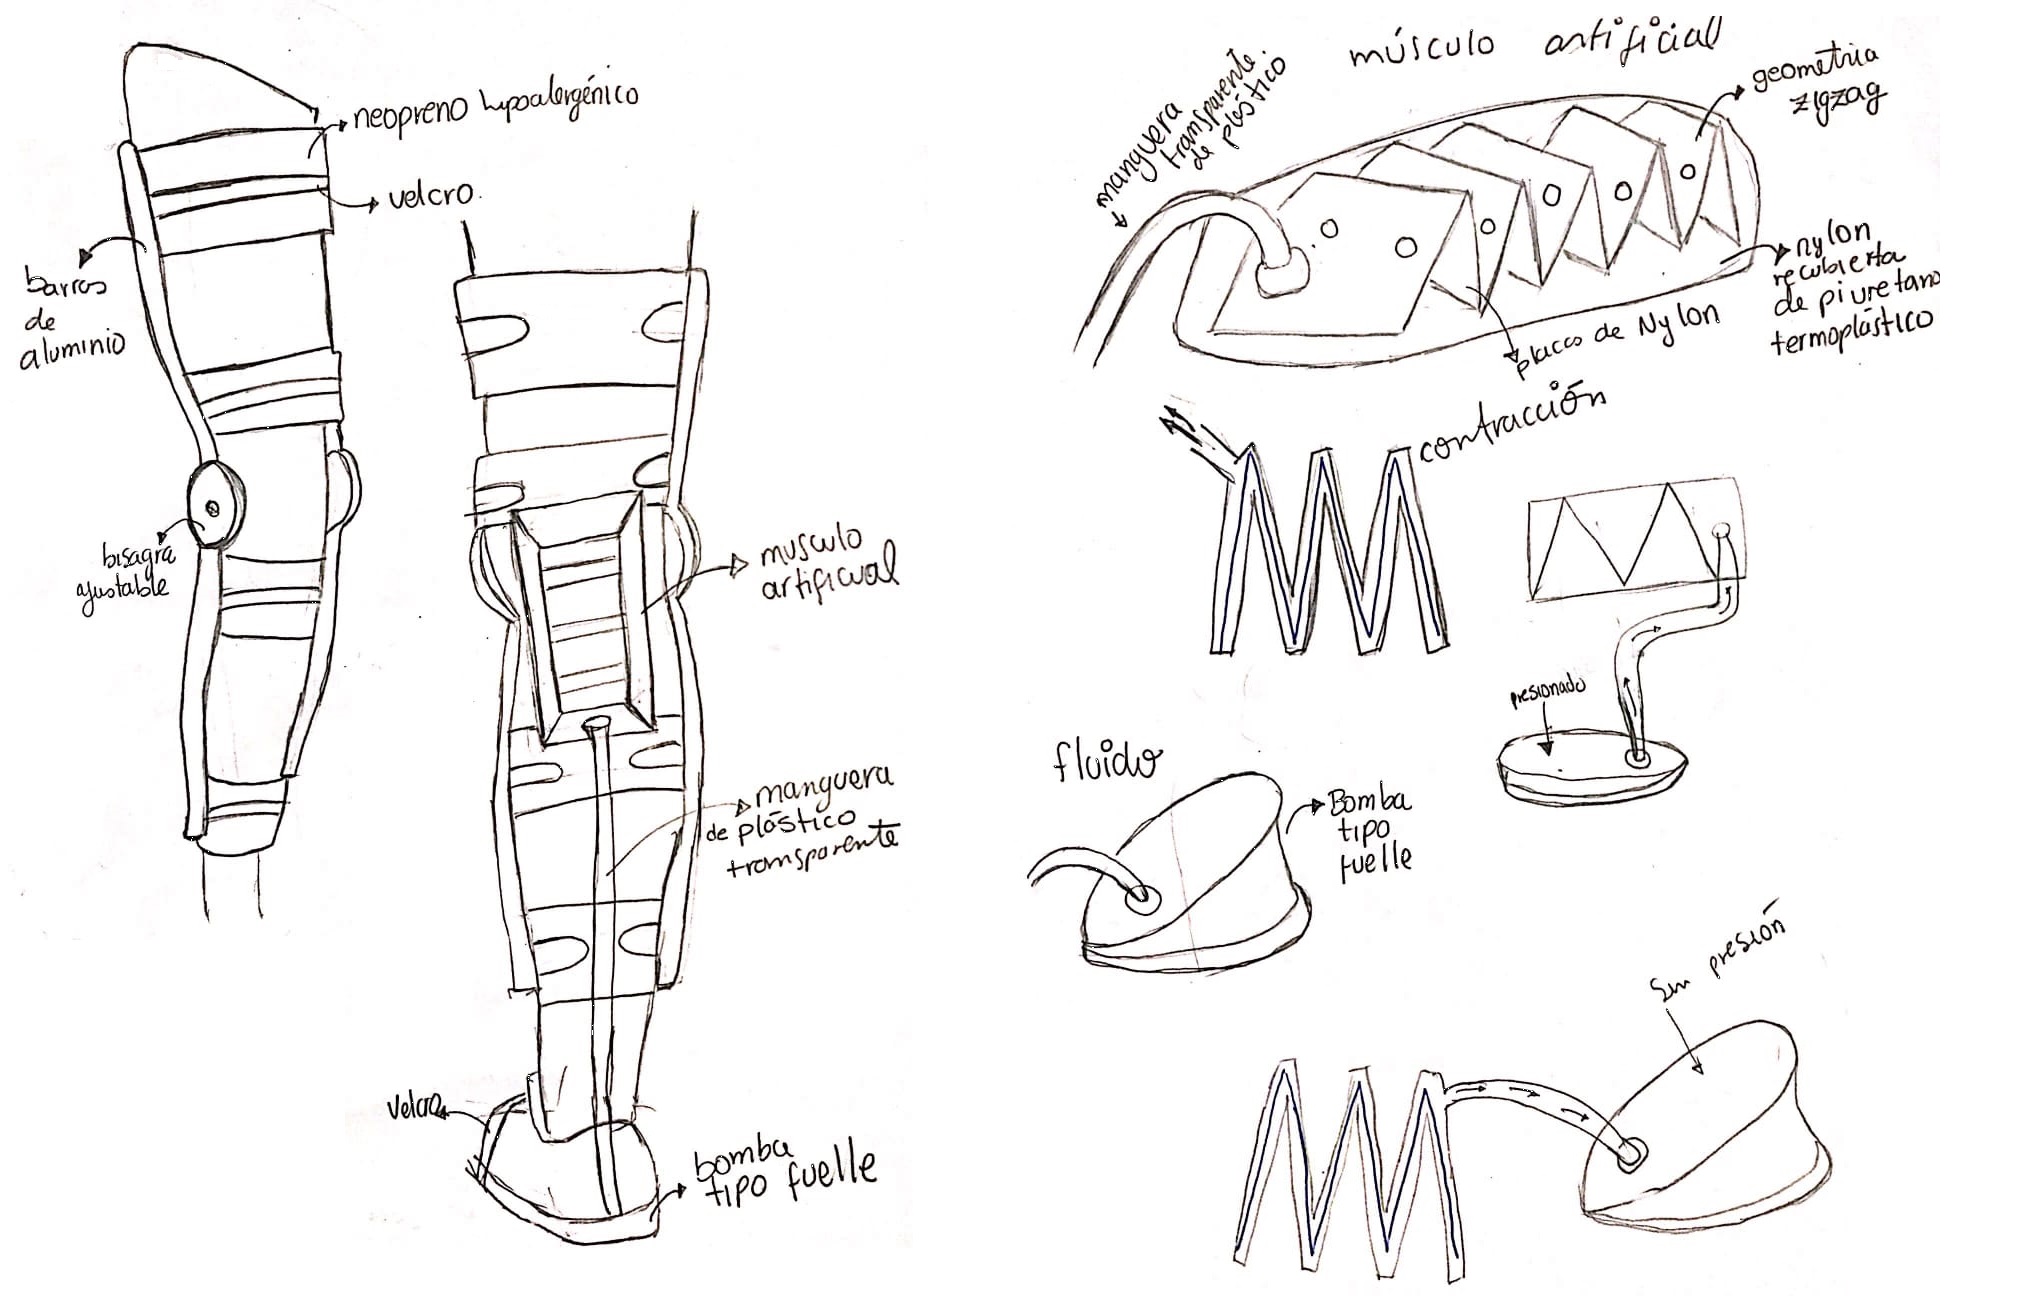 neopreno hipoalergénico
velcro.
barras
de
aluminio
bisagra
ajustable
musculo
artificial
manguera
de plástico
transparente
velcro
bomba
tipo fuelle
músculo artificial
manguera
transparente.
de plástico
geometria
zigzag
nylon
recubierta
de piuretano
termoplástico
placas de Nylon
contracción
presionado
fluido
Bomba
tipo
fuelle
Sin presión